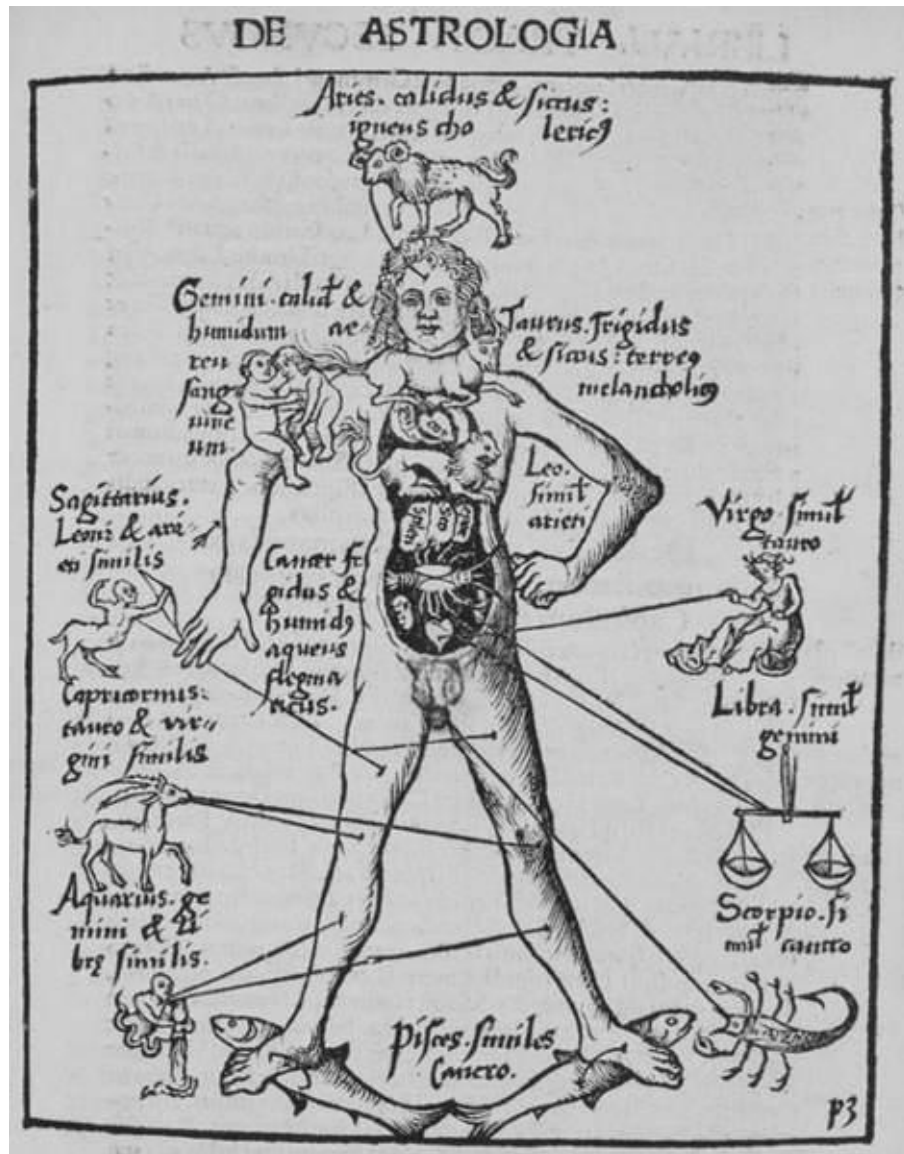 DE ASTROLOGIA
Aries. calidus & siccus:
igneus cho lericꝰ
Gemini. calid' &
humidum ae-
reu
sang
uine
um.
Taurus. frigidus
& siccus: terreꝰ
melancholicꝰ
Leo.
simil'
arieti
Sagittarius.
Leoni & ari
eti similis
Cancer fri
gidus &
humidꝰ
aqueus
flegma
ticus.
Virgo. simil'
tauro
Capricornus:
tauro & vir-
gini similis
Libra. simil'
gemini
Aquarius. ge
mini & li
brę similis.
Scorpio. si
mil' cancro
Pisces. similes
Cancro.
p3